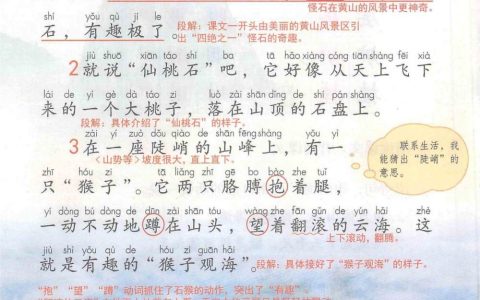 怪石在黄山的风景中更神奇。
shí yǒu qù jí le
石，有趣极了。
段解：课文一开头由美丽的黄山风景区引
出“四绝之一”怪石的奇趣。
jiù shuō xiān táo shí ba tā hǎo xiàng cóng tiān shàng fēi xià
2就说“仙桃石”吧，它好像从天上飞下
lái de yí gè dà táo zi luò zài shān dǐng de shí pán shàng
来的一个大桃子，落在山顶的石盘上。
段解：具体介绍了“仙桃石”的样子。
zài yí zuò dǒu qiào de shān fēng shàng yǒu yì
3在一座陡峭的山峰上，有一
＜山势等＞坡度很大，直上直下。
联系生活，我
能猜出“陡峭”的
意思。
zhī hóu zi tā liǎng zhī gē bo bào zhe tuǐ
只“猴子”。它两只胳膊抱着腿，
yí dòng bú dòng de dūn zài shān tóu wàng zhe fān gǔn de yún hǎi zhè
一动不动地蹲在山头，望着翻滚的云海。这
上下滚动，翻腾。
jiù shì yǒu qù de hóu zi guān hǎi
就是有趣的“猴子观海”。段解：具体接好了“猴子观海”的样子。
“抱”“望”“蹲”动词抓住了石猴的动作，突出了“有趣”